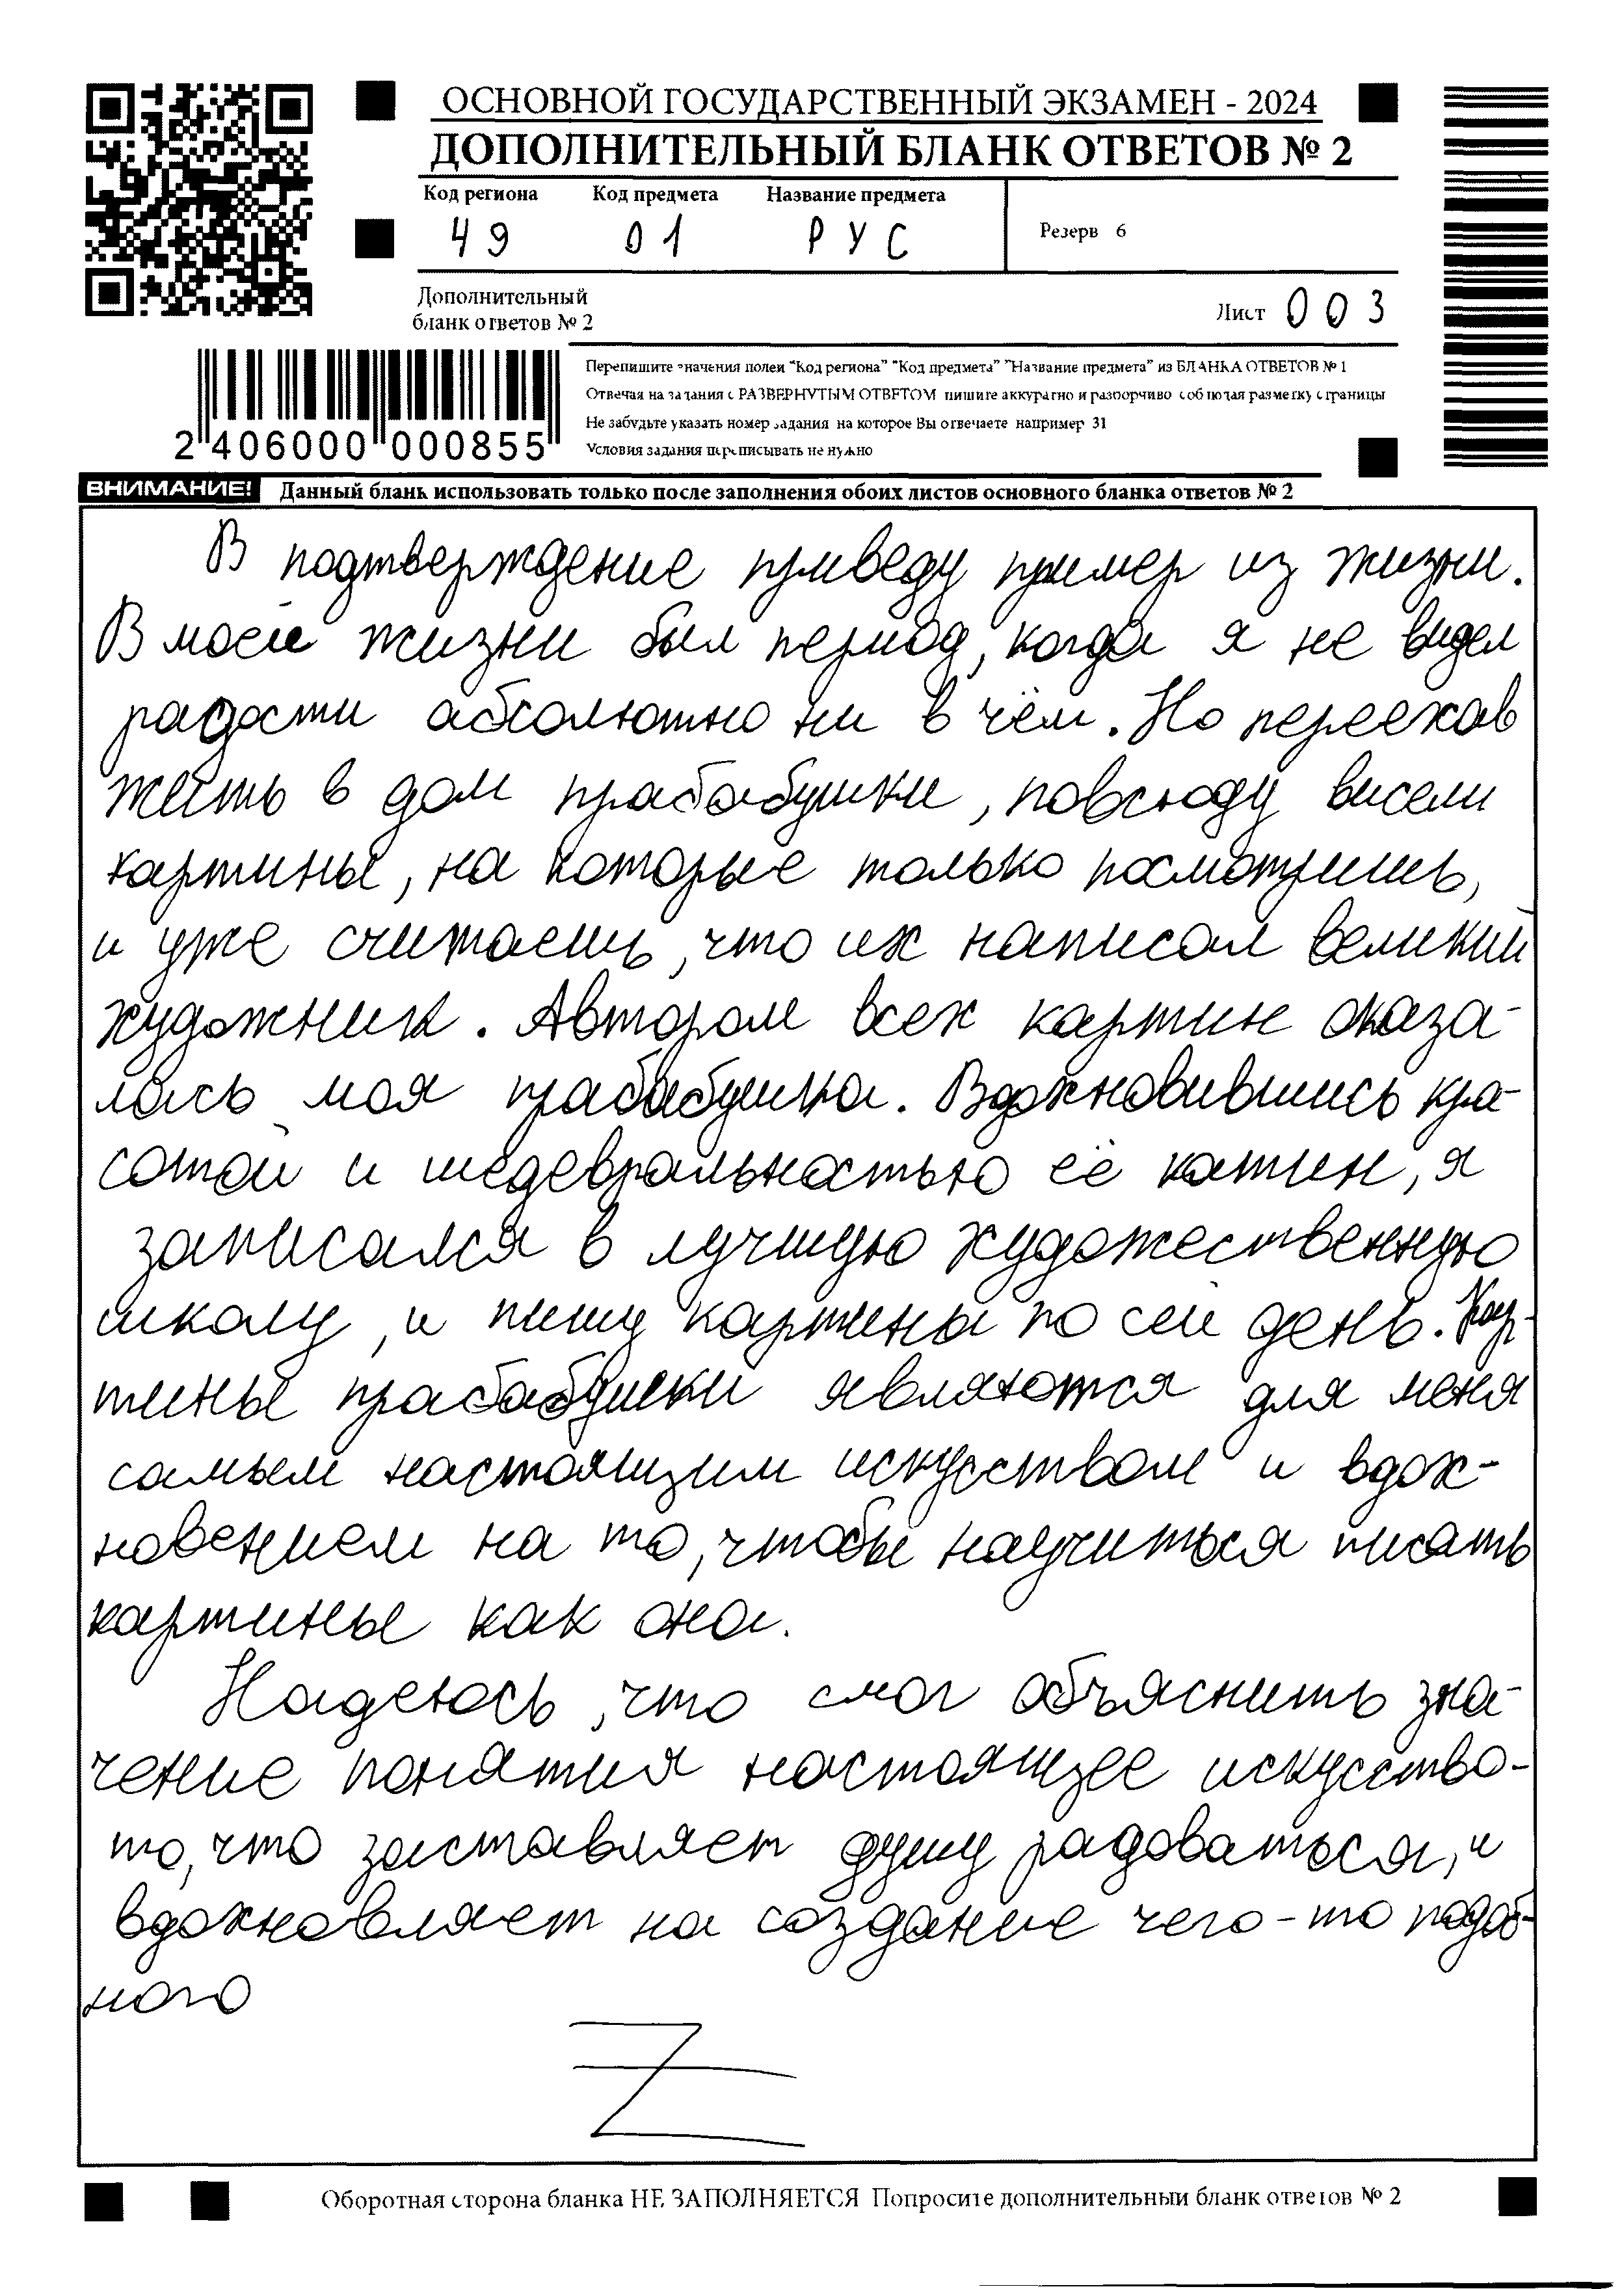 ОСНОВНОЙ ГОСУДАРСТВЕННЫЙ ЭКЗАМЕН - 2024
ДОПОЛНИТЕЛЬНЫЙ БЛАНК ОТВЕТОВ № 2
Код региона Код предмета Название предмета
Резерв 6
49 01 РУС
Дополнительный
бланк ответов № 2
Лист 003
Перепишите значения полей "Код региона" "Код предмета" "Название предмета" из БЛАНКА ОТВЕТОВ № 1
Отвечая на задания с РАЗВЕРНУТЫМ ОТВЕТОМ пишите аккуратно и разборчиво соблюдая разметку страницы
Не забудьте указать номер задания на которое Вы отвечаете например 31
Условия задания переписывать не нужно
2 406000 000855
ВНИМАНИЕ! Данный бланк использовать только после заполнения обоих листов основного бланка ответов № 2
В подтверждение приведу пример из жизни.
В моей жизни был период, когда я не видел
радости абсолютно ни в чём. Но переехав
жить в дом прабабушки, повсюду висели
картины, на которые только посмотришь,
и уже считаешь, что их написал великий
художник. Автором всех картин оказа-
лась моя прабабушка. Вдохновившись кра-
сотой и шедевральностью её катин, я
записался в лучшую художественную
школу, и пишу картины по сей день. Кар-
тины прабабушки являются для меня
самым настоящим искусством и вдох-
новением на то, чтобы научиться писать
картины как она.
Надеюсь, что смог объяснить зна-
чение понятия настоящее искусство-
то, что заставляет душу радоваться, и
вдохновляет на создание чего-то подоб-
ного
Z
Оборотная сторона бланка НЕ ЗАПОЛНЯЕТСЯ Попросите дополнительный бланк ответов № 2